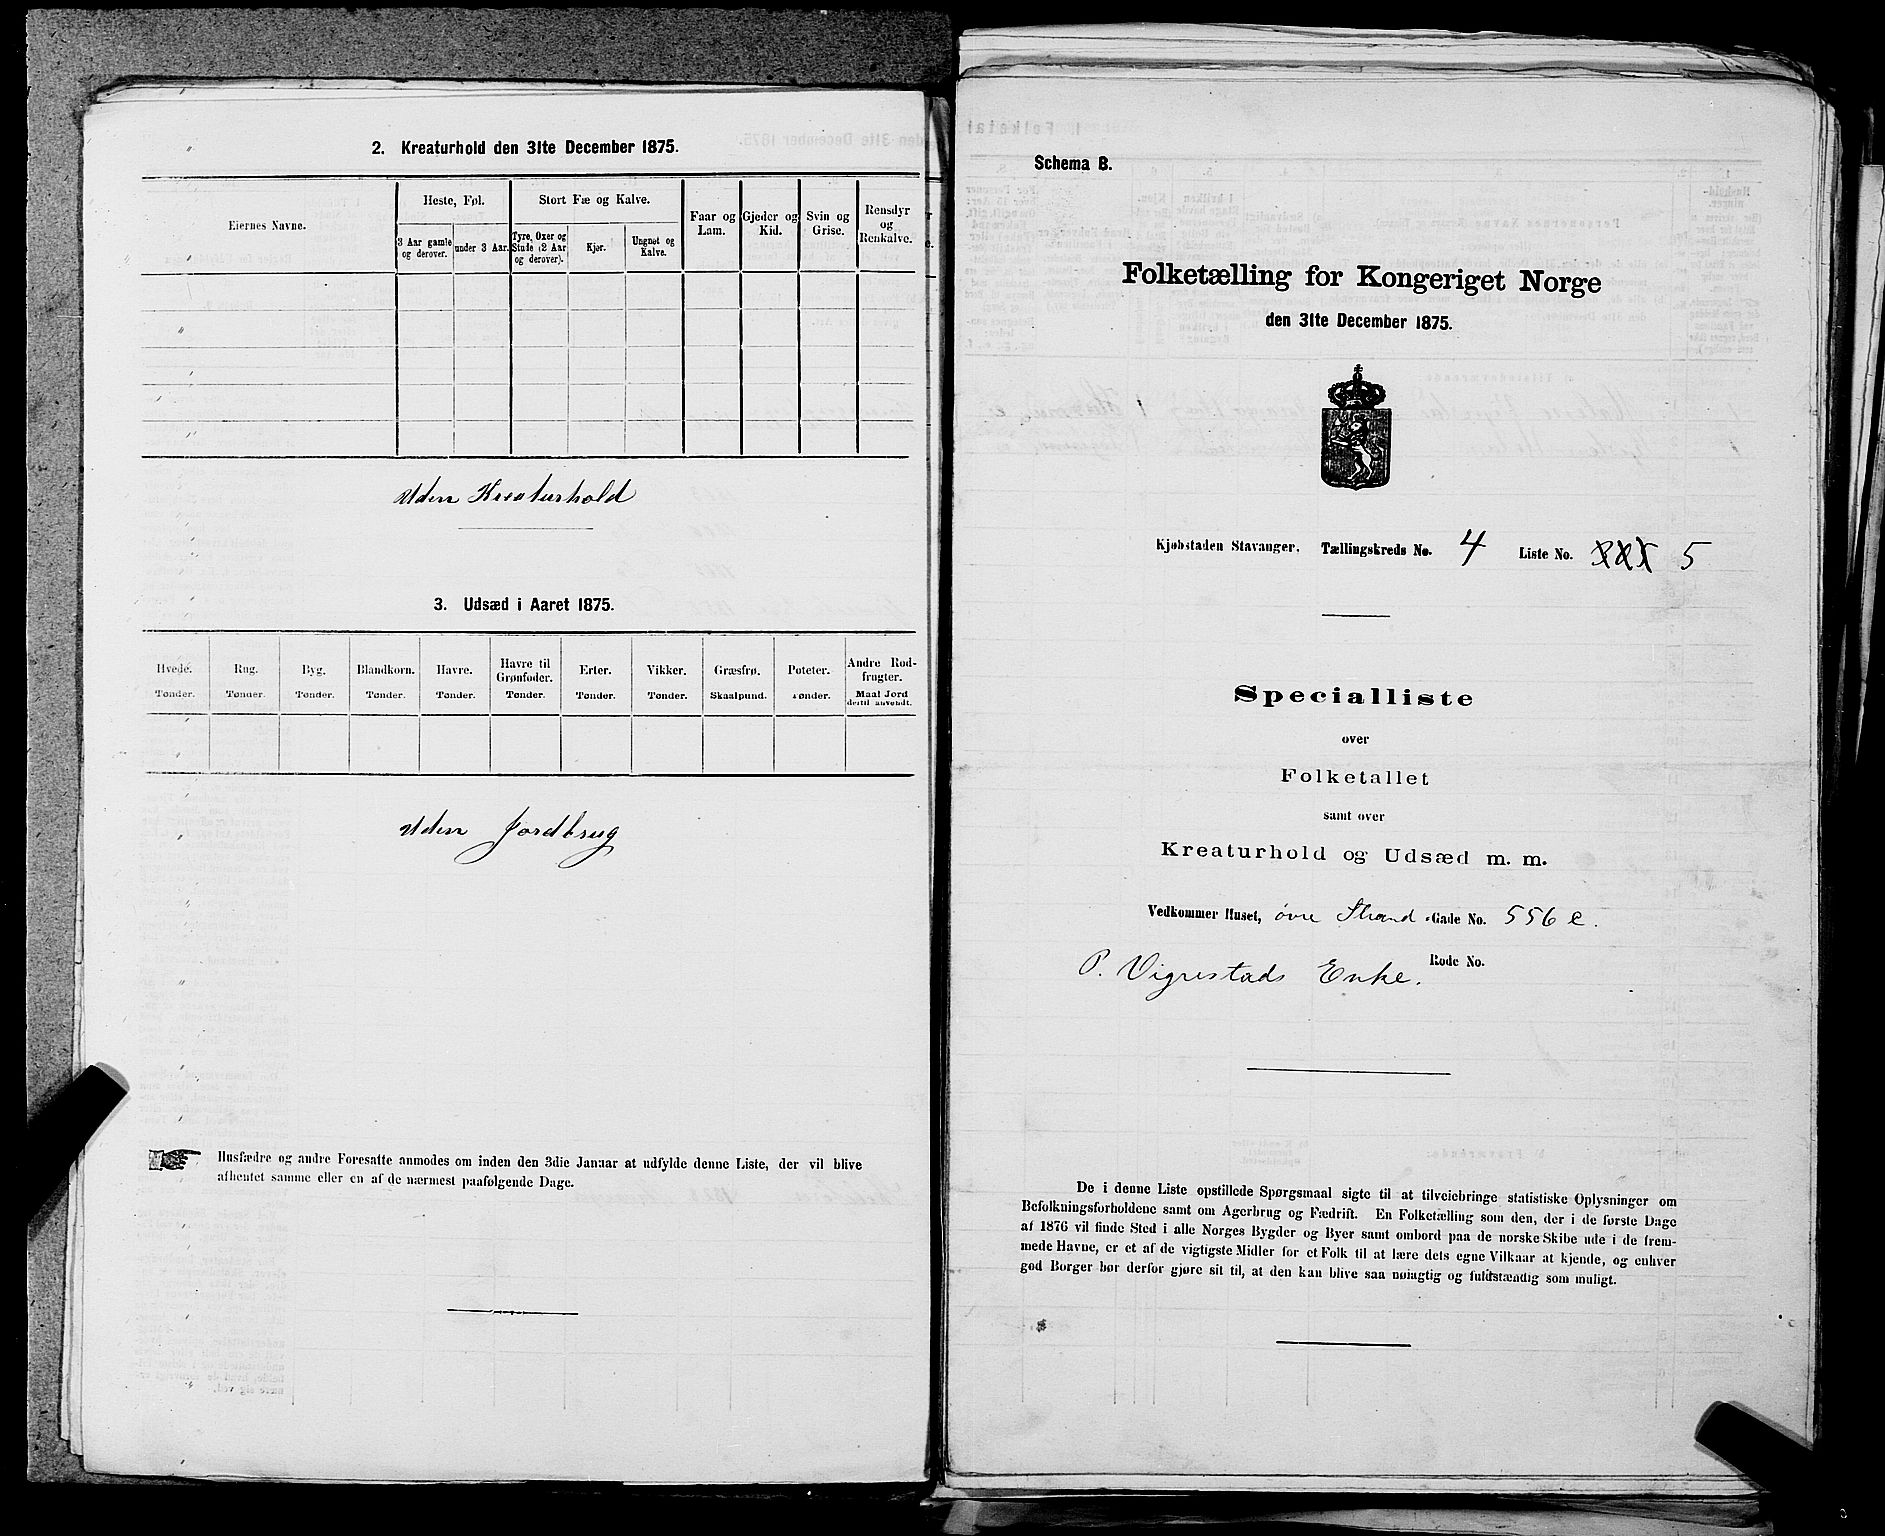 2. Kreaturhold den 31te December 1875.
Eiernes Navne.
Heste, Føl.
3 Aar gamle og derover.
under 3 Aar.
Stort Fæ og Kalve.
Tyre, Oxer og Stude (2 Aar og derover).
Kjør.
Ungnøt og Kalve.
Faar og Lam.
Gjeder og Kid.
Svin og Grise.
Rensdyr og Renkalve.
Uden Kreaturhold
3. Udsæd i Aaret 1875.
Hvede. Rug. Byg. Blandkorn. Havre. Havre til Grønfoder. Erter. Vikker. Græsfrø. Poteter. Andre Rodfrugter.
Tønder. Tønder. Tønder. Tønder. Tønder. Tønder. Tønder. Tønder. Skaalpund. Tønder. Maal Jord dertil anvendt.
Uden Jordbrug
Husfædre og andre Foresatte anmodes om inden den 3die Januar at udfylde denne Liste, der vil blive
afhentet samme eller en af de nærmest paafølgende Dage.
Schema B.
Folketælling for Kongeriget Norge
den 31te December 1875.
Kjøbstaden Stavanger. Tællingskreds No. 4 Liste No. 5
Specialliste
over
Folketallet
samt over
Kreaturhold og Udsæd m. m.
Vedkommer Huset, øvre Strand-Gade No. 556 e.
Rode No.
P. Vigrestads Enke.
De i denne Liste opstillede Spørgsmaal sigte til at tilveiebringe statistiske Oplysninger om
Befolkningsforholdene samt om Agerbrug og Fædrift. En Folketælling som den, der i de første Dage
af 1876 vil finde Sted i alle Norges Bygder og Byer samt ombord paa de norske Skibe ude i de frem-
mede Havne, er et af de vigtigste Midler for et Folk til at lære dets egne Vilkaar at kjende, og enhver
god Borger bør derfor gjøre sit til, at den kan blive saa nøiagtig og fuldstændig som muligt.